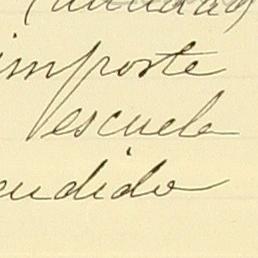 importe
escuela
endido